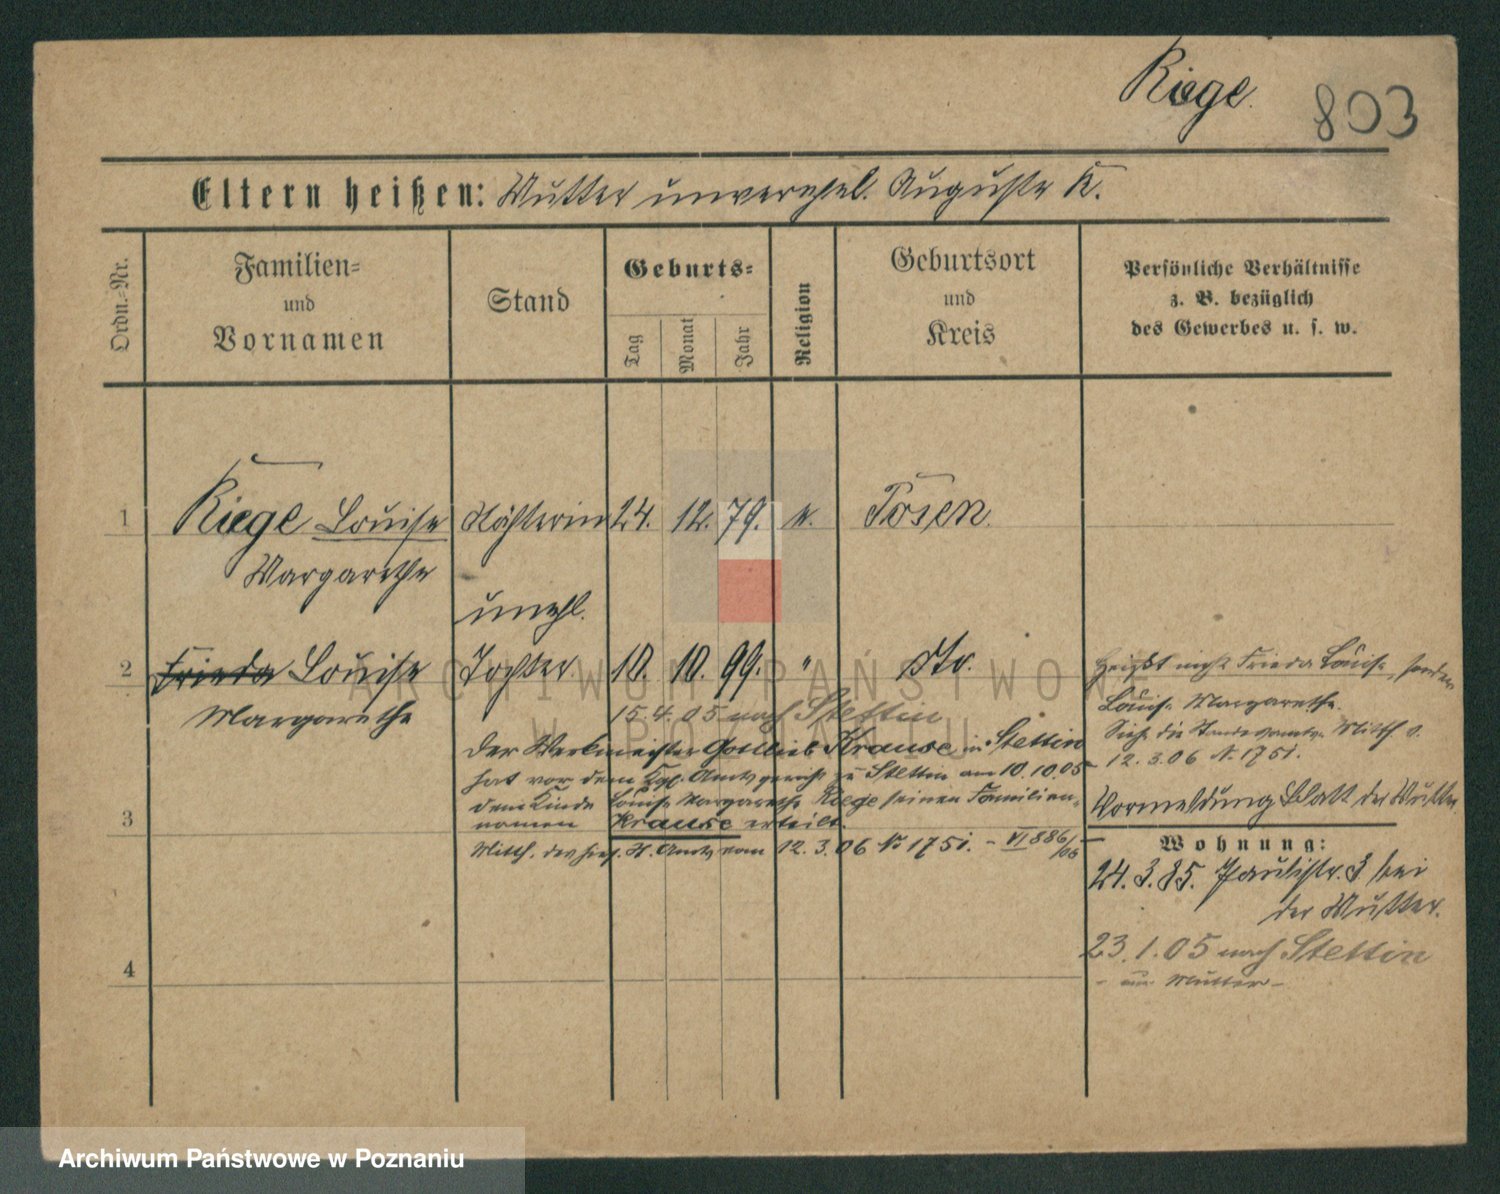 Riege.
803
Eltern heißen: Mutter unverehel. Auguste R.
Ordn.-Nr.
Familien-
und
Vornamen
Stand
Geburts-
Tag
Monat
Jahr
Religion
Geburtsort
und
Kreis
Persönliche Verhältnisse
z. B. bezüglich
des Gewerbes u. s. w.
1 Riege Louise Nähterin 24. 12. 79. k. Posen.
Margarethe
unehl.
2 Frieda Louise Tochter 10. 10. 99. " dto.
Margarethe
Heißt nicht Frieda Louise, sondern
Louise Margarethe.
Siehe die Standesamts- Mitth. v.
12. 3. 06 N. 1751.
15. 4. 05 nach Stettin
Der Werkmeister Gottlieb Krause in Stettin
hat vor dem Kgl. Amtsgericht zu Stettin am 10. 10. 05
dem Kinde Louise Margarethe Riege seinen Familien-
namen Krause erteilt.
Mitth. des St. Amts vom 12. 3. 06 No 1751. - VI 886/06
Vormeldung Blatt der Mutter.
3
Wohnung:
24. 3. 85. Paulistr. 3 bei
der Mutter.
23. 1. 05 nach Stettin
- Mutter -
4
ARCHIWUM PAŃSTWOWE
W POZNANIU
Archiwum Państwowe w Poznaniu